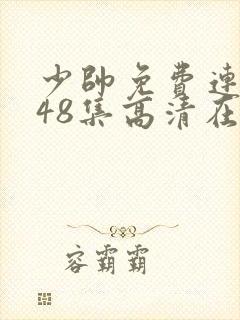 少帥免費連
48集高清在
容霸霸